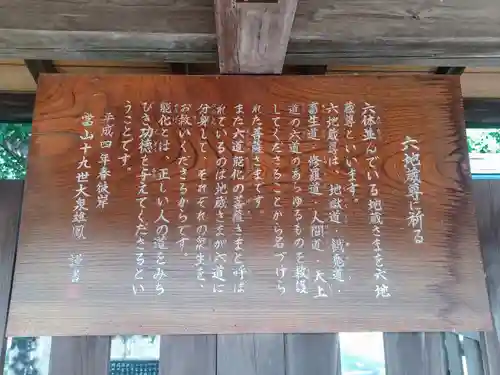 六地蔵尊に祈る
六体並んでいる地蔵さまを六地
蔵尊といいます。
六地蔵尊は、地獄道・餓鬼道・
畜生道・修羅道・人間道・天上
道の六道のあらゆるものを救護
してくださることから名づけら
れた菩薩さまです。
また六道能化の菩薩さまと呼ば
れているのは地蔵さまが六道に
分身して、それぞれの衆生を、
お救いくださるからです。
能化とは、正しい人の道をみち
びき功徳を与えてくださるとい
うことです。
平成四年春彼岸
當山十九世大泉雄鳳